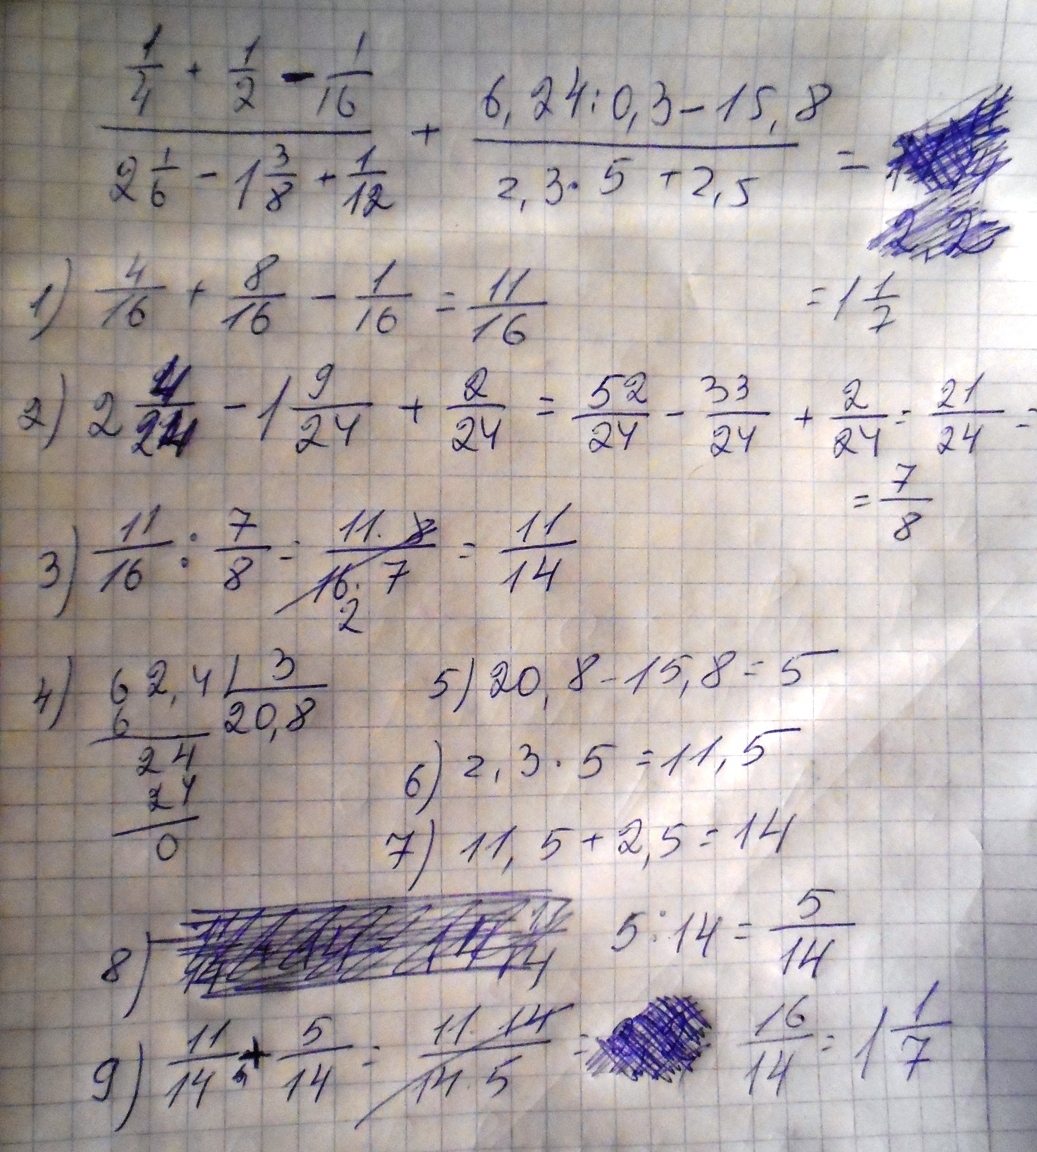 1/4 + 1/2 - 1/16 / 2 1/6 - 1 3/8 + 1/12 + 6,24:0,3-15,8 / 2,3·5+2,5 =
= 1 1/7
1) 4/16 + 8/16 - 1/16 = 11/16
2) 2 4/24 - 1 9/24 + 2/24 = 52/24 - 33/24 + 2/24 = 21/24 =
= 7/8
3) 11/16 : 7/8 = 11·8/16·7 = 11/14
2
4) 62,4 | 3
6 20,8
24
24
0
5) 20,8-15,8=5
6) 2,3·5=11,5
7) 11,5+2,5=14
8) 5:14 = 5/14
9) 11/14 + 5/14 = 11·14/14·5 = 16/14 = 1 1/7